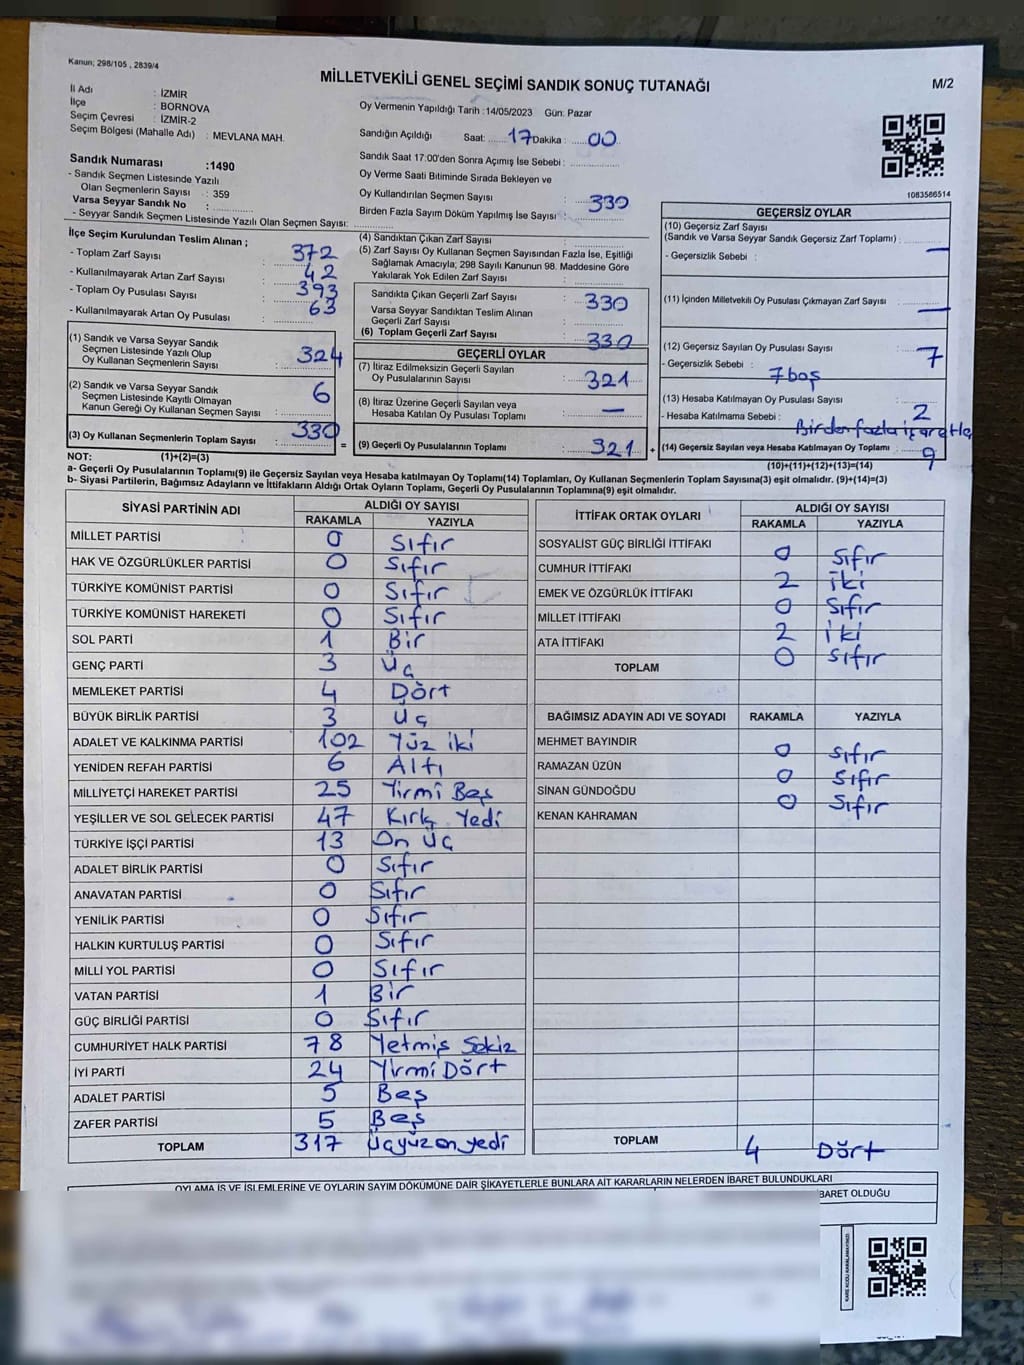 Kanun; 298/105 , 2839/4
MİLLETVEKİLİ GENEL SEÇİMİ SANDIK SONUÇ TUTANAĞI
M/2
İl Adı : İZMİR
İlçe : BORNOVA
Seçim Çevresi : İZMİR-2
Seçim Bölgesi (Mahalle Adı) : MEVLANA MAH.
Sandık Numarası :1490
- Sandık Seçmen Listesinde Yazılı
Olan Seçmenlerin Sayısı : 359
Varsa Seyyar Sandık No :
- Seyyar Sandık Seçmen Listesinde Yazılı Olan Seçmen Sayısı:
Oy Vermenin Yapıldığı Tarih :14/05/2023 Gün: Pazar
Sandığın Açıldığı Saat: 17 Dakika : 00
Sandık Saat 17:00'den Sonra Açımış İse Sebebi :
Oy Verme Saati Bitiminde Sırada Bekleyen ve
Oy Kullandırılan Seçmen Sayısı : 330
Birden Fazla Sayım Döküm Yapılmış İse Sayısı :
1083586514
İlçe Seçim Kurulundan Teslim Alınan ;
- Toplam Zarf Sayısı : 372
- Kullanılmayarak Artan Zarf Sayısı : 42
- Toplam Oy Pusulası Sayısı : 393
- Kullanılmayarak Artan Oy Pusulası : 63
(1) Sandık ve Varsa Seyyar Sandık
Seçmen Listesinde Yazılı Olup
Oy Kullanan Seçmenlerin Sayısı : 324
(2) Sandık ve Varsa Seyyar Sandık
Seçmen Listesinde Kayıtlı Olmayan
Kanun Gereği Oy Kullanan Seçmen Sayısı : 6
(3) Oy Kullanan Seçmenlerin Toplam Sayısı : 330
(4) Sandıktan Çıkan Zarf Sayısı :
(5) Zarf Sayısı Oy Kullanan Seçmen Sayısından Fazla İse, Eşitliği
Sağlamak Amacıyla; 298 Sayılı Kanunun 98. Maddesine Göre
Yakılarak Yok Edilen Zarf Sayısı :
Sandıkta Çıkan Geçerli Zarf Sayısı : 330
Varsa Seyyar Sandıktan Teslim Alınan
Geçerli Zarf Sayısı :
(6) Toplam Geçerli Zarf Sayısı : 330
GEÇERLİ OYLAR
(7) İtiraz Edilmeksizin Geçerli Sayılan
Oy Pusulalarının Sayısı : 321
(8) İtiraz Üzerine Geçerli Sayılan veya
Hesaba Katılan Oy Pusulası Toplamı : —
= (9) Geçerli Oy Pusulalarının Toplamı : 321 +
GEÇERSİZ OYLAR
(10) Geçersiz Zarf Sayısı
(Sandık ve Varsa Seyyar Sandık Geçersiz Zarf Toplamı) : —
- Geçersizlik Sebebi :
(11) İçinden Milletvekili Oy Pusulası Çıkmayan Zarf Sayısı : —
(12) Geçersiz Sayılan Oy Pusulası Sayısı : 7
- Geçersizlik Sebebi : 7 boş
(13) Hesaba Katılmayan Oy Pusulası Sayısı : 2
- Hesaba Katılmama Sebebi : Birden fazla işaretle
(14) Geçersiz Sayılan veya Hesaba Katılmayan Oy Toplamı : 9
NOT: (1)+(2)=(3)
(10)+(11)+(12)+(13)=(14)
a- Geçerli Oy Pusulalarının Toplamı(9) ile Geçersiz Sayılan veya Hesaba katılmayan Oy Toplamı(14) Toplamları, Oy Kullanan Seçmenlerin Toplam Sayısına(3) eşit olmalıdır. (9)+(14)=(3)
b- Siyasi Partilerin, Bağımsız Adayların ve İttifakların Aldığı Ortak Oyların Toplamı, Geçerli Oy Pusulalarının Toplamına(9) eşit olmalıdır.
SİYASİ PARTİNİN ADI ALDIĞI OY SAYISI
RAKAMLA YAZIYLA
MİLLET PARTİSİ 0 Sıfır
HAK VE ÖZGÜRLÜKLER PARTİSİ 0 Sıfır
TÜRKİYE KOMÜNİST PARTİSİ 0 Sıfır
TÜRKİYE KOMÜNİST HAREKETİ 0 Sıfır
SOL PARTİ 1 Bir
GENÇ PARTİ 3 Üç
MEMLEKET PARTİSİ 4 Dört
BÜYÜK BİRLİK PARTİSİ 3 Üç
ADALET VE KALKINMA PARTİSİ 102 Yüz iki
YENİDEN REFAH PARTİSİ 6 Altı
MİLLİYETÇİ HAREKET PARTİSİ 25 Yirmi Beş
YEŞİLLER VE SOL GELECEK PARTİSİ 47 Kırk Yedi
TÜRKİYE İŞÇİ PARTİSİ 13 On üç
ADALET BİRLİK PARTİSİ 0 Sıfır
ANAVATAN PARTİSİ 0 Sıfır
YENİLİK PARTİSİ 0 Sıfır
HALKIN KURTULUŞ PARTİSİ 0 Sıfır
MİLLİ YOL PARTİSİ 0 Sıfır
VATAN PARTİSİ 1 Bir
GÜÇ BİRLİĞİ PARTİSİ 0 Sıfır
CUMHURİYET HALK PARTİSİ 78 Yetmiş Sekiz
İYİ PARTİ 24 Yirmi Dört
ADALET PARTİSİ 5 Beş
ZAFER PARTİSİ 5 Beş
TOPLAM 317 Üçyüzonyedi
İTTİFAK ORTAK OYLARI ALDIĞI OY SAYISI
RAKAMLA YAZIYLA
SOSYALİST GÜÇ BİRLİĞİ İTTİFAKI 0 Sıfır
CUMHUR İTTİFAKI 2 iki
EMEK VE ÖZGÜRLÜK İTTİFAKI 0 Sıfır
MİLLET İTTİFAKI 2 iki
ATA İTTİFAKI 0 Sıfır
TOPLAM
BAĞIMSIZ ADAYIN ADI VE SOYADI RAKAMLA YAZIYLA
MEHMET BAYINDIR 0 Sıfır
RAMAZAN ÜZÜN 0 Sıfır
SİNAN GÜNDOĞDU 0 Sıfır
KENAN KAHRAMAN
TOPLAM 4 Dört
OYLAMA İŞ VE İŞLEMLERİNE VE OYLARIN SAYIM DÖKÜMÜNE DAİR ŞİKAYETLERLE BUNLARA AİT KARARLARIN NELERDEN İBARET BULUNDUKLARI
İBARET OLDUĞU